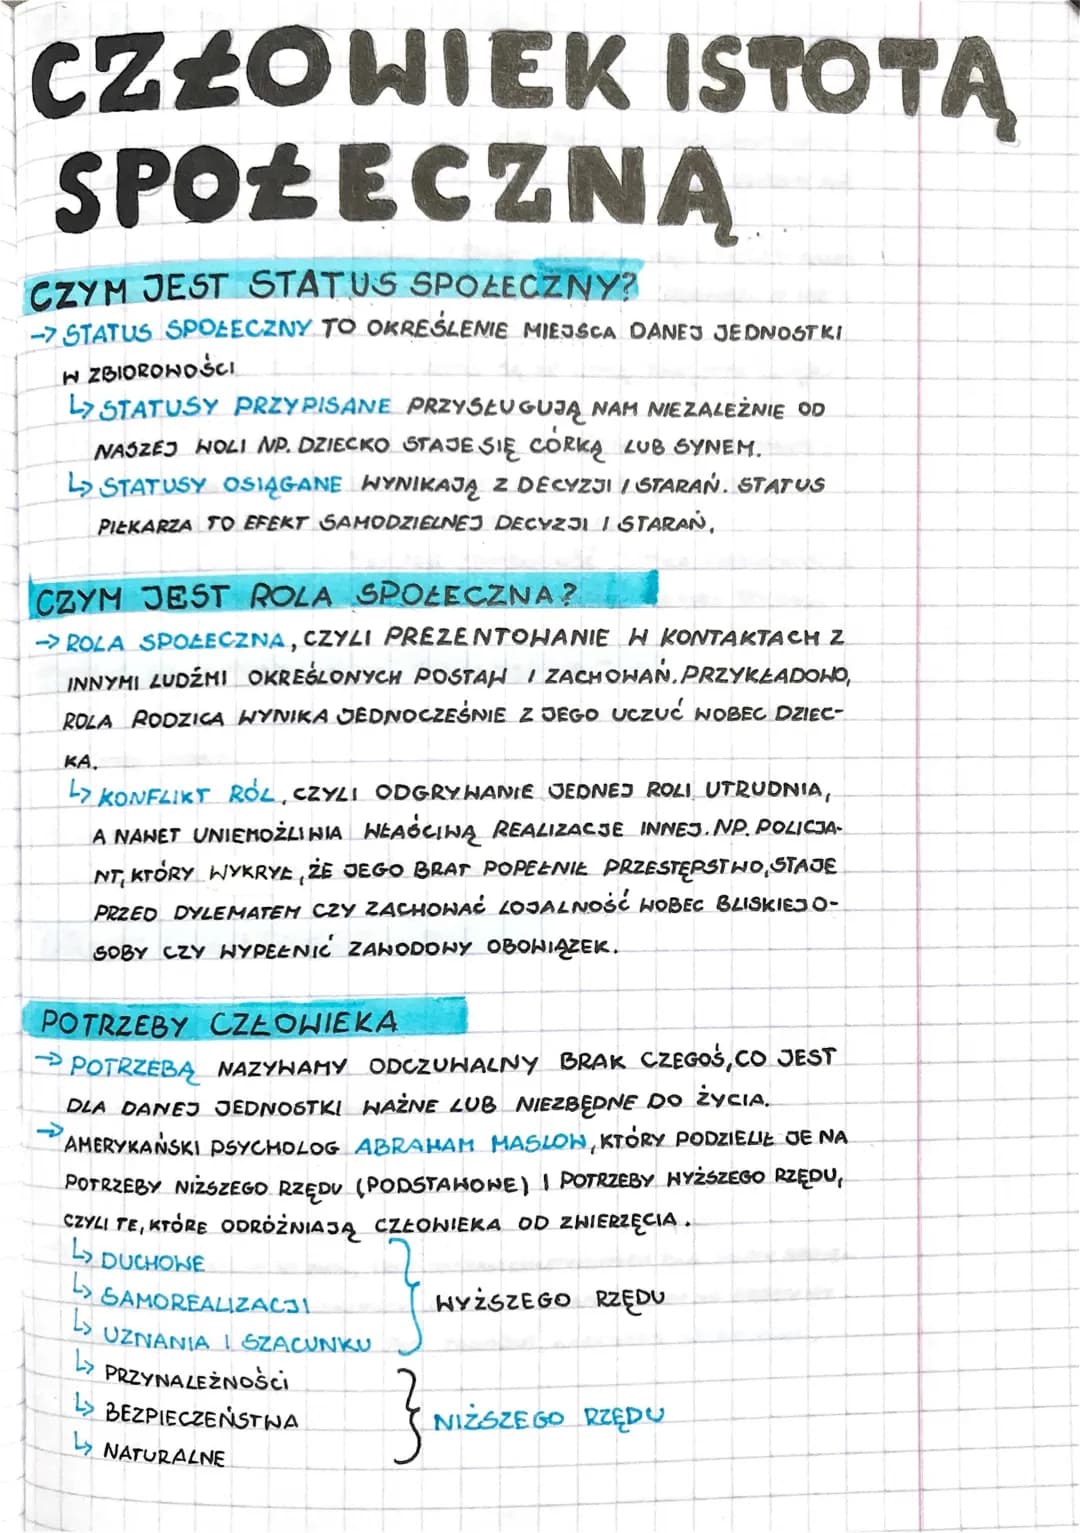 CZŁOWIEK ISTOTĄ
SPOŁECZNĄ
CZYM JEST STATUS SPOŁECZNY?
→ STATUS SPOŁECZNY TO OKREŚLENIE MIEJSCA DANEJ JEDNOSTKI
W ZBIOROWOŚCI
↳ STATUSY PRZYPISANE PRZYSŁUGUJĄ NAM NIEZALEŻNIE OD
NASZEJ WOLI NP. DZIECKO STAJE SIĘ CÓRKĄ LUB SYNEM.
↳ STATUSY OSIĄGANE WYNIKAJĄ Z DECYZJI I STARAŃ. STATUS
PIŁKARZA TO EFEKT SAMODZIELNEJ DECYZJI I STARAŃ.
CZYM JEST ROLA SPOŁECZNA?
→ ROLA SPOŁECZNA, CZYLI PREZENTOWANIE W KONTAKTACH Z
INNYMI LUDŹMI OKREŚLONYCH POSTAW I ZACHOWAŃ. PRZYKŁADOWO,
ROLA RODZICA WYNIKA JEDNOCZEŚNIE Z JEGO UCZUĆ WOBEC DZIEC-
KA.
↳ KONFLIKT RÓL, CZYLI ODGRYWANIE JEDNEJ ROLI UTRUDNIA,
A NAWET UNIEMOŻLIWIA WŁAŚCIWĄ REALIZACJE INNEJ. NP. POLICJA-
NT, KTÓRY WYKRYŁ, ŻE JEGO BRAT POPEŁNIŁ PRZESTĘPSTWO, STAJE
PRZED DYLEMATEM CZY ZACHOWAĆ LOJALNOŚĆ WOBEC BLISKIEJ O-
SOBY CZY WYPEŁNIĆ ZAWODOWY OBOWIĄZEK.
POTRZEBY CZŁOWIEKA
→ POTRZEBĄ NAZYWAMY ODCZUWALNY BRAK CZEGOŚ, CO JEST
DLA DANEJ JEDNOSTKI WAŻNE LUB NIEZBĘDNE DO ŻYCIA.
→ AMERYKAŃSKI PSYCHOLOG ABRAHAM MASLOW, KTÓRY PODZIELIŁ JE NA
POTRZEBY NIŻSZEGO RZĘDU (PODSTAWOWE) I POTRZEBY WYŻSZEGO RZĘDU,
CZYLI TE, KTÓRE ODRÓŻNIAJĄ CZŁOWIEKA OD ZWIERZĘCIA.
↳ DUCHOWE
↳ SAMOREALIZACJI
WYŻSZEGO RZĘDU
↳ UZNANIA I SZACUNKU
↳ PRZYNALEŻNOŚCI
↳ BEZPIECZEŃSTWA
NIŻSZEGO RZĘDU
↳ NATURALNE